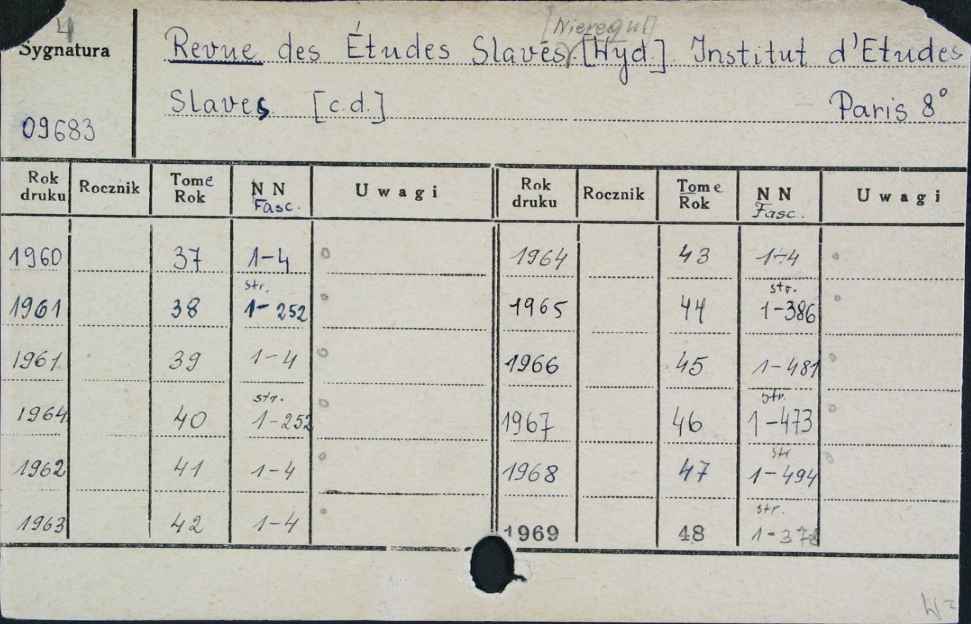 4
[Nieregul]
Sygnatura
Revue des Études Slaves. [Hyd.] Institut d'Etudes
Slaves [c.d.] Paris 8°
09683
Rok druku Rocznik Tome Rok NN Fasc. Uwagi Rok druku Rocznik Tome Rok NN Fasc. Uwagi
1960 37 1-4 1964 43 1-4
1961 38 str. 1-252 1965 44 str. 1-386
1961 39 1-4 1966 45 1-481
1964 40 str. 1-252 1967 46 str. 1-473
1962 41 1-4 1968 47 str 1-494
1963 42 1-4 1969 48 str. 1-378